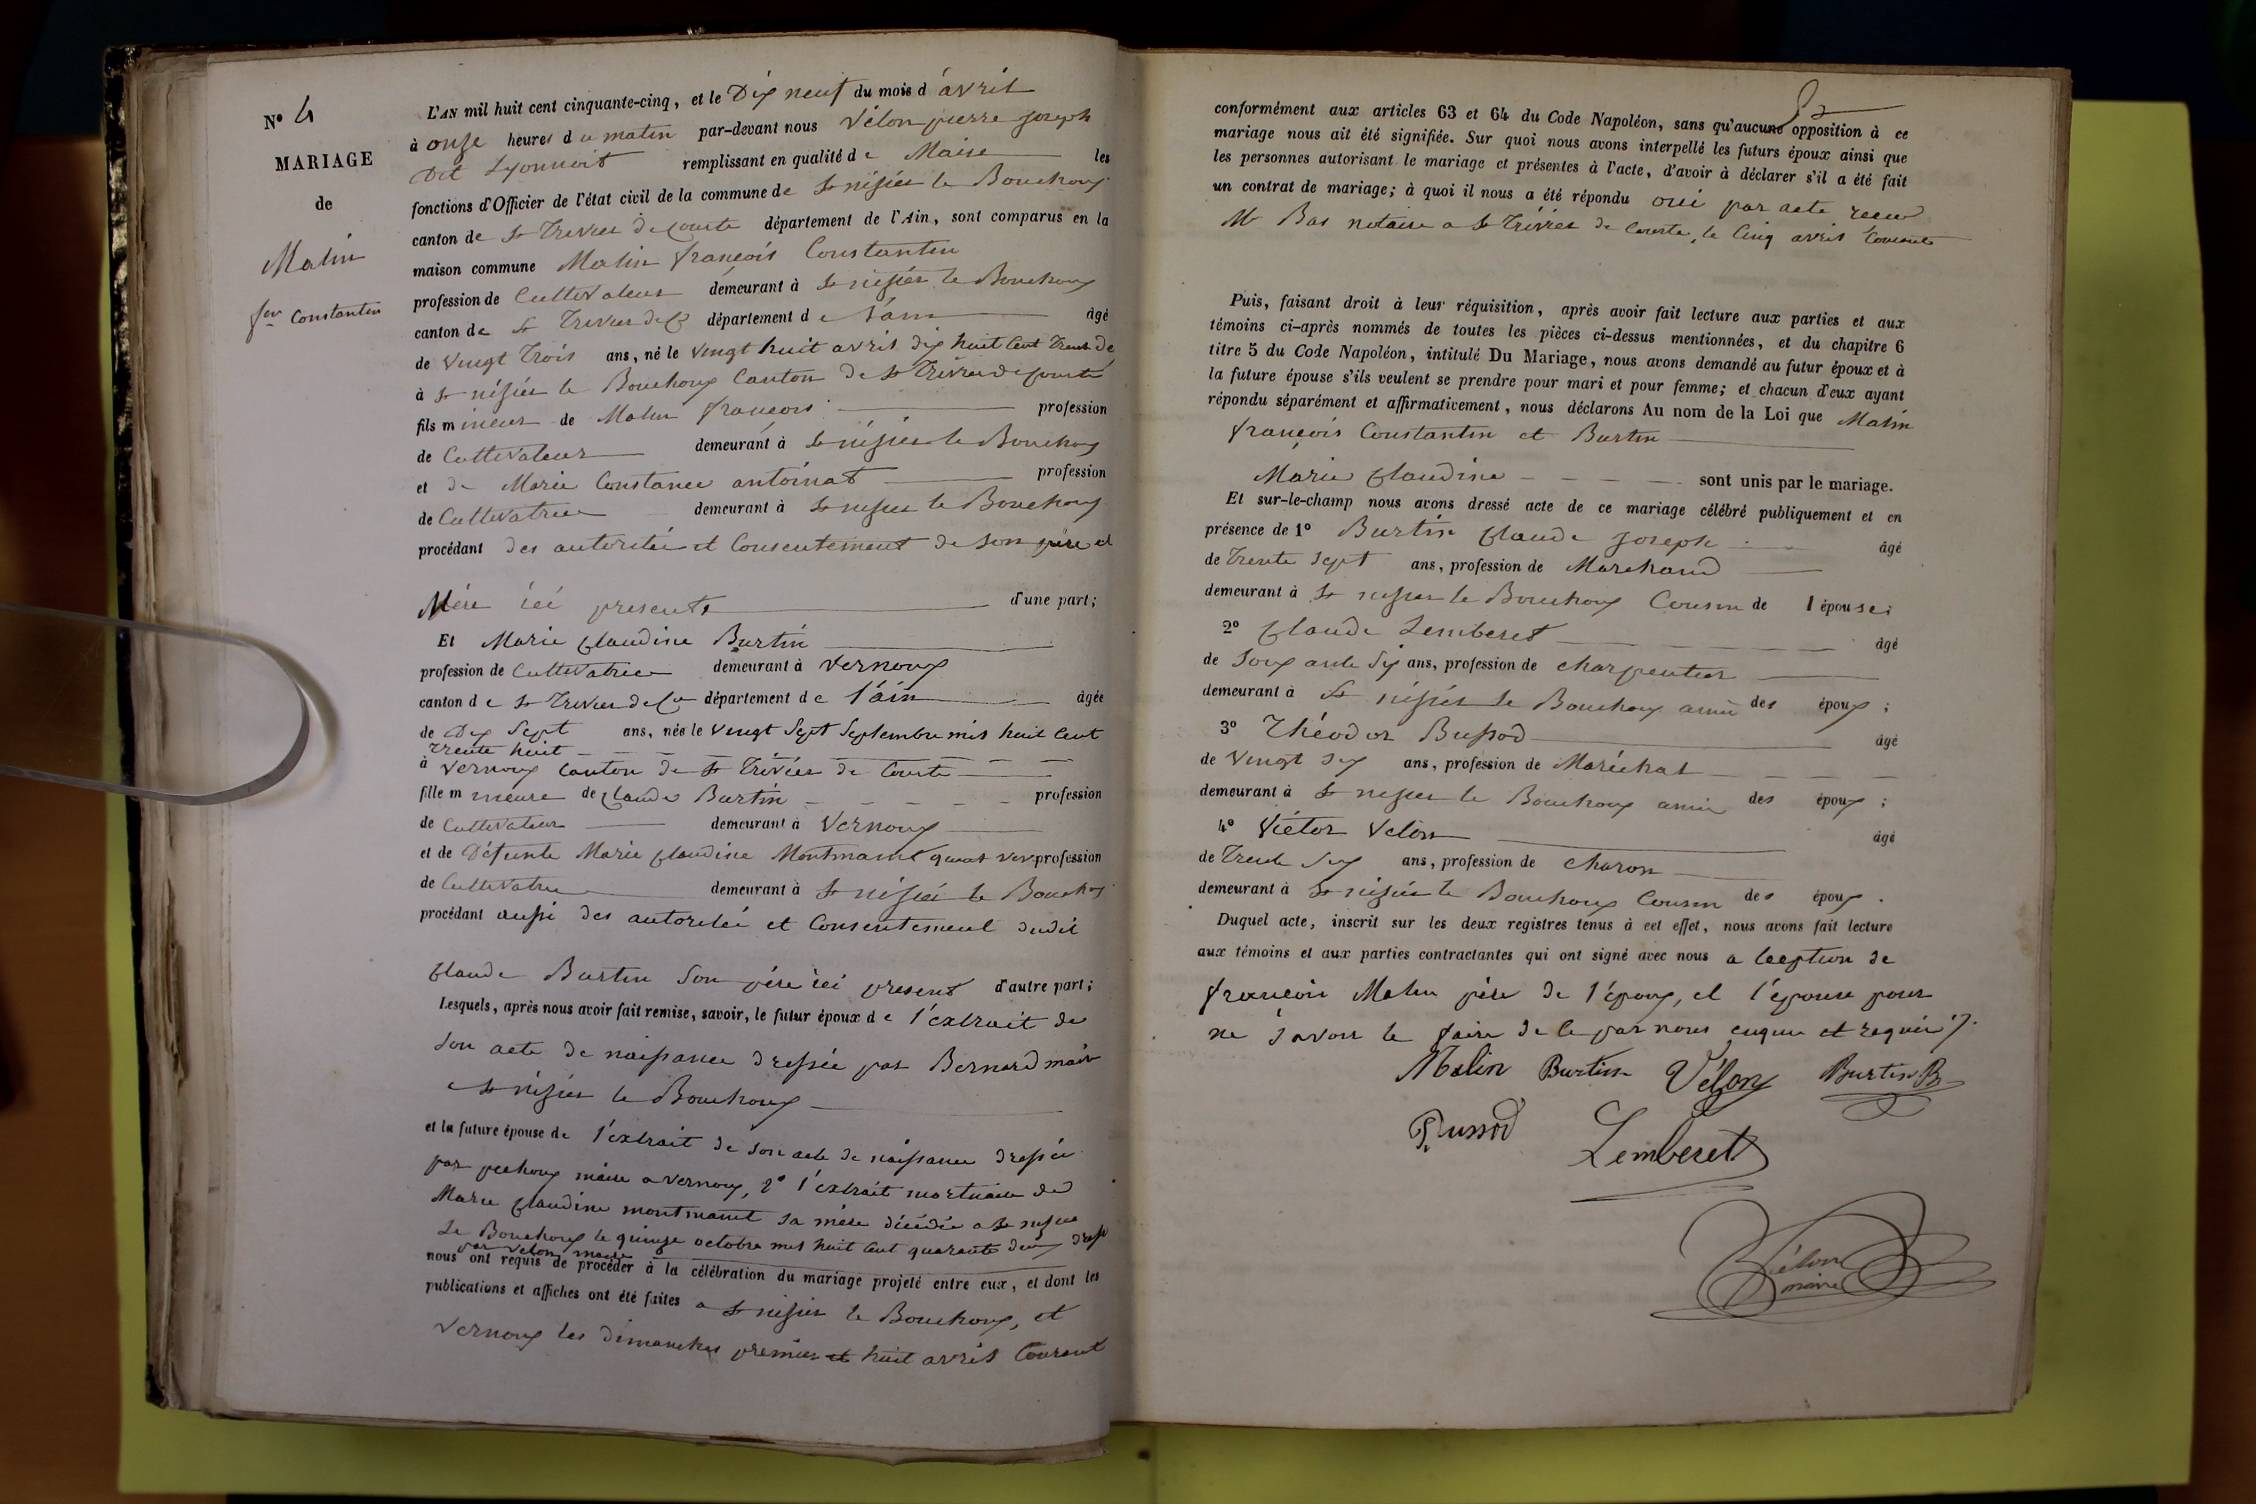 N° 4
MARIAGE
de
Malin
fçois Constantin
L'AN mil huit cent cinquante-cinq, et le Dix neuf du mois d'avril
à onze heures du matin par-devant nous Vélon pierre joseph
Dit Lyonnoit remplissant en qualité de Maire les
fonctions d'Officier de l'état civil de la commune de St nisier le Bouchoux
canton de St Trivier de Courte département de l'Ain, sont comparus en la
maison commune Malin françois Constantin
profession de Cultivateur demeurant à St nisier le Bouchoux
canton de St Trivier de C département de l'ain âgé
de Vingt Trois ans, né le Vingt huit avril dix huit Cent Trente
à St nisier le Bouchoux Canton de St Trivier de Courte
fils mineur de Malin françois profession
de Cultivateur demeurant à St nisier le Bouchoux
et de Marie Constance antoinat profession
de Cultivatrice demeurant à St nisier le Bouchoux
procédant des autoritée et Consentement de son père et
Mère ici presents d'une part;
Et Marie Claudine Burtin
profession de Cultivatrice demeurant à Vernoux
canton de St Trivier de Cu département de l'ain âgée
de Dix Sept ans, née le Vingt Sept Septembre mil huit Cent
Trente huit
à Vernoux Canton de St Trivier de Courte
fille mineure de Claude Burtin profession
de Cultivateur demeurant à Vernoux
et de Défunte Marie Claudine Montmanit profession
de Cultivatrice demeurant à St nisier le Bouchx
procédant aussi des autoritée et Consentement dudit
Claude Burtin Son père ici present d'autre part;
Lesquels, après nous avoir fait remise, savoir, le futur époux de l'extrait de
Son acte de naissance dressée par Bernard maire
a St nisier le Bouchoux
et la future épouse de l'extrait de son acte de naissance dressée
par pechoux maire a Vernoux, 2° l'extrait mortuaire de
Marie Claudine montmanit sa mère décédée a St nisier
Le Bouchoux le quinze octobre mil huit Cent quarante deux dressé
par Velon maire
nous ont requis de procéder à la célébration du mariage projeté entre eux, et dont les
publications et affiches ont été faites a St nisier le Bouchoux, et
Vernoux les dimanches premier et huit avril Courant
52
conformément aux articles 63 et 64 du Code Napoléon, sans qu'aucune opposition à ce
mariage nous ait été signifiée. Sur quoi nous avons interpellé les futurs époux ainsi que
les personnes autorisant le mariage et présentes à l'acte, d'avoir à déclarer s'il a été fait
un contrat de mariage; à quoi il nous a été répondu oui par acte recu
Me Bas notaire a St Trivier de Courte, le Cinq avril Courant
Puis, faisant droit à leur réquisition, après avoir fait lecture aux parties et aux
témoins ci-après nommés de toutes les pièces ci-dessus mentionnées, et du chapitre 6
titre 5 du Code Napoléon, intitulé Du Mariage, nous avons demandé au futur époux et à
la future épouse s'ils veulent se prendre pour mari et pour femme; et chacun d'eux ayant
répondu séparément et affirmativement, nous déclarons Au nom de la Loi que Malin
françois Constantin et Burtin
Marie Claudine sont unis par le mariage.
Et sur-le-champ nous avons dressé acte de ce mariage célébré publiquement et en
présence de 1° Burtin Claude joseph âgé
de Trente Sept ans, profession de Marchand
demeurant à St nisier le Bouchoux Cousin de l'épouse;
2° Claude Lemberet âgé
de Soixante Six ans, profession de charpentier
demeurant à St nisier le Bouchoux amie des époux;
3° Théodor Bussod âgé
de Vingt Six ans, profession de Maréchal
demeurant à St nisier le Bouchoux amie des époux;
4° Victor Velon âgé
de Trente Six ans, profession de charon
demeurant à St nisier le Bouchoux Cousin des époux.
Duquel acte, inscrit sur les deux registres tenus à cet effet, nous avons fait lecture
aux témoins et aux parties contractantes qui ont signé avec nous a lexeption de
françois Malin père de l'époux, et l'épouse pour
ne Savoir le faire de ce par nous enquis et requis
Malin Burtin Vélon Burtin B
Bussod Lemberet
Vélon
maire